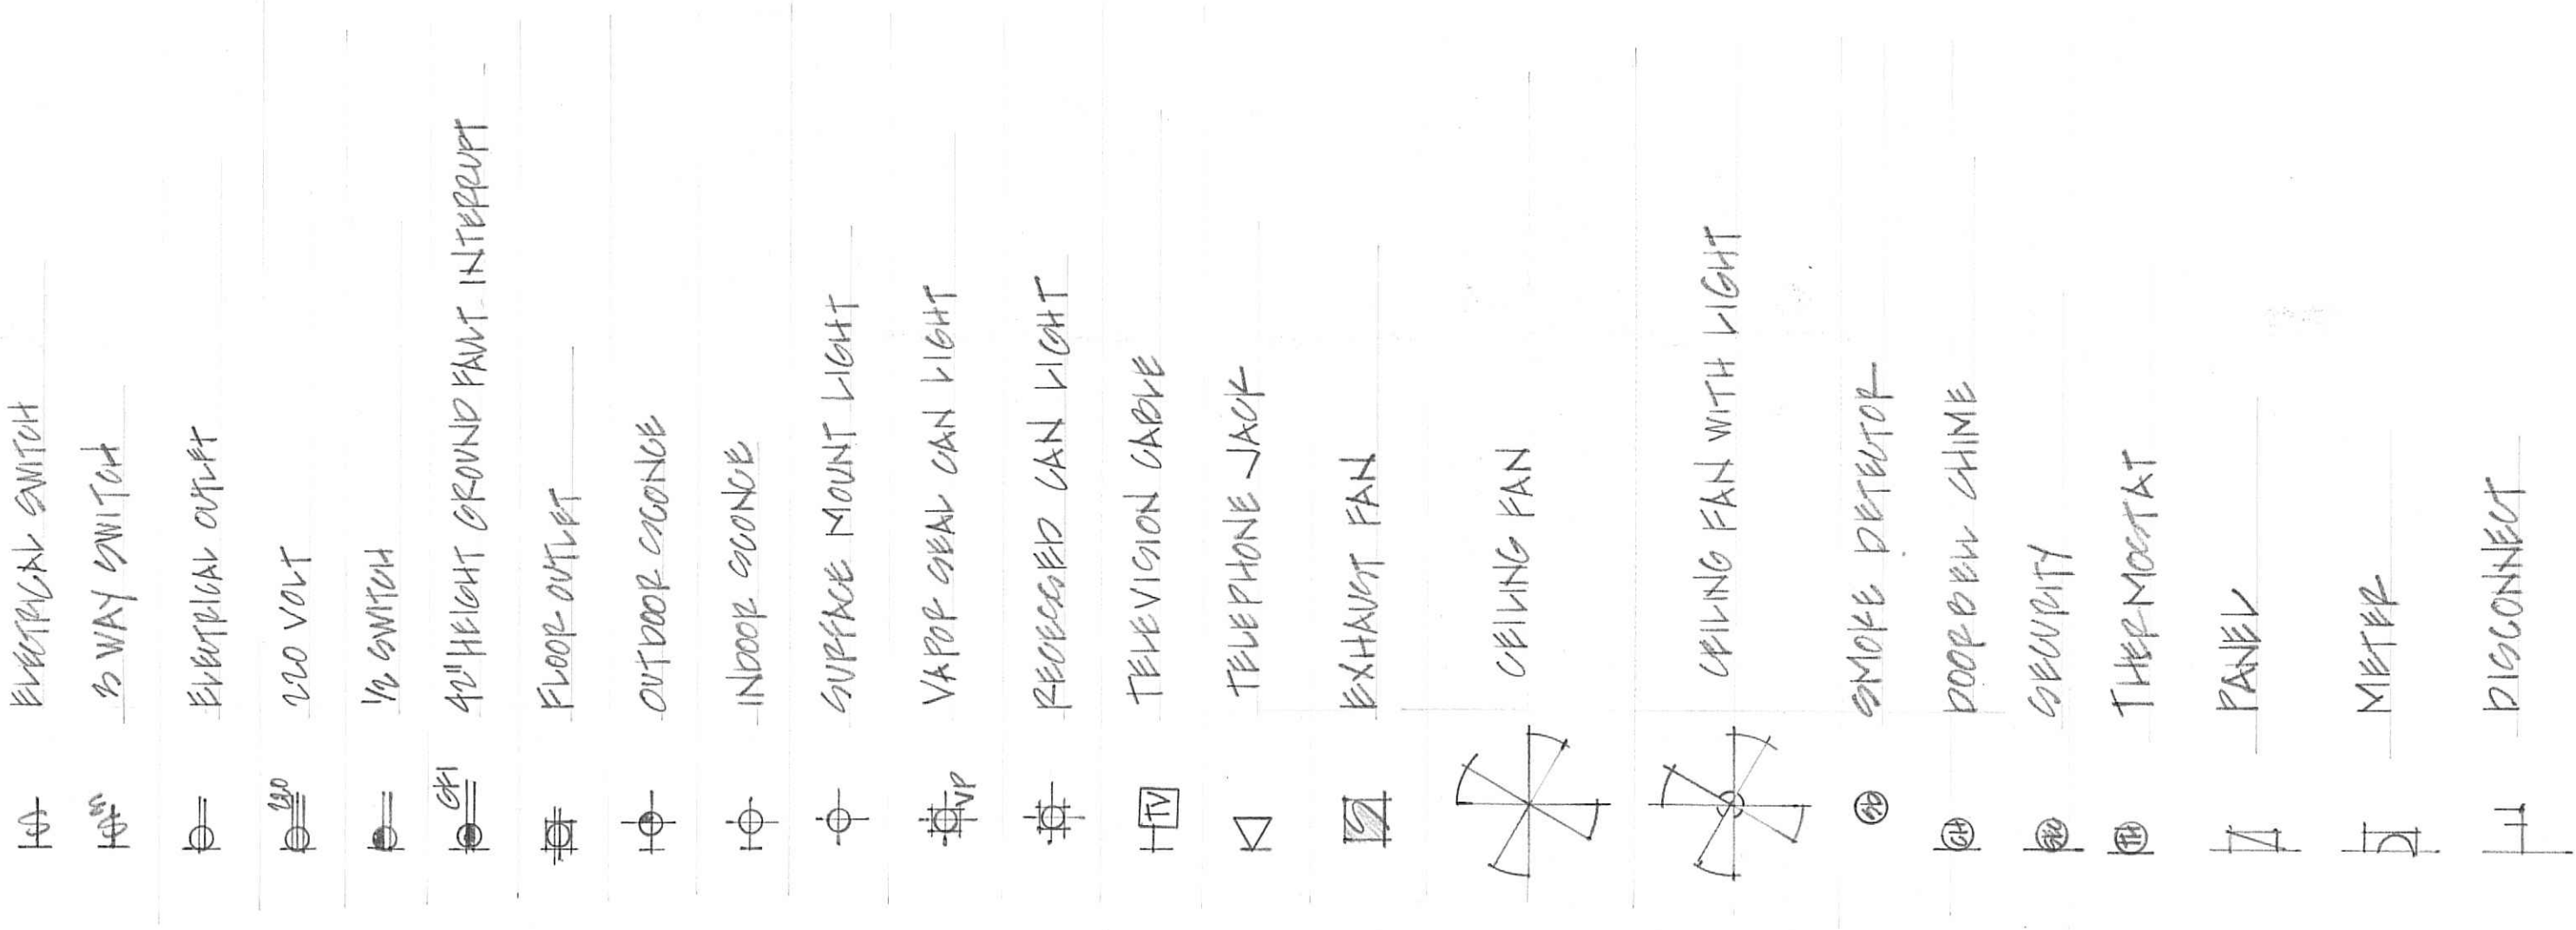 ELECTRICAL SWITCH
3 WAY SWITCH
ELECTRICAL OUTLET
220 220 VOLT
1/2 SWITCH
GFI 42" HEIGHT GROUND FAULT INTERRUPT
FLOOR OUTLET
OUTDOOR SCONCE
INDOOR SCONCE
SURFACE MOUNT LIGHT
VP VAPOR SEAL CAN LIGHT
RECESSED CAN LIGHT
TV TELEVISION CABLE
TELEPHONE JACK
EXHAUST FAN
CEILING FAN
CEILING FAN WITH LIGHT
SD SMOKE DETECTOR
CH DOORBELL CHIME
SEC SECURITY
TH THERMOSTAT
PANEL
METER
DISCONNECT